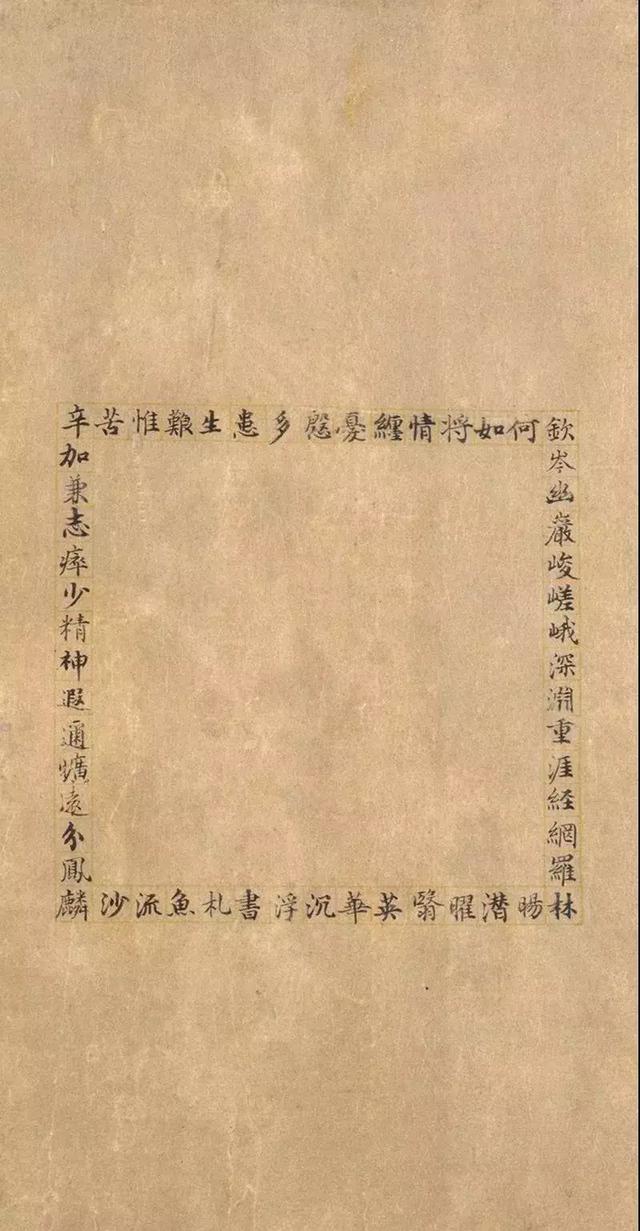 欽岑幽巖峻嵯峨深淵重涯経網羅
林暘潜曜翳英華沉浮書札魚流沙
麟鳳分遠曠邇遐神精少瘁志兼加
辛苦惟艱生患多慇憂纏情将如何